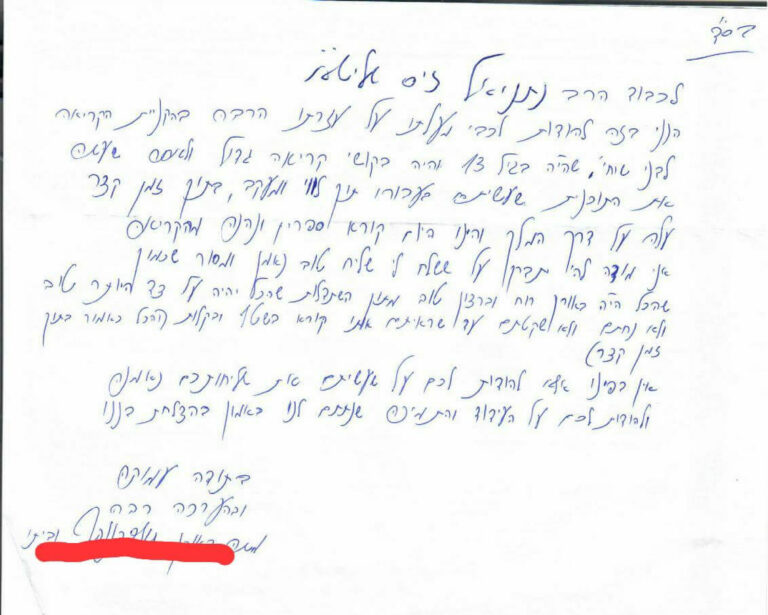 בס"ד
לכבוד הרב נתניאל זיס שליט"א
הנני בזה להודות לכבי מעלתו על עזרתו הרבה בהקניית הקריאה
לבני שיחי', שהיה בגיל 13 והיה בקושי קריאה גדול ולאחר שעשה
את התוכנית שעשיתם בעבורו תוך לווי ומעקב, בתוך זמן קצר
עלה על דרך המלך והינו היום קורא ספרים ונהנה מהקריאה
אני מודה להי' יתברך על ששלח לי שליח טוב נאמן ומסור שכמוך
שהכל היה באורך רוח וברצון טוב מתוך השתדלות שהכל יהיה על צד היותר טוב
ולא נחתם ולא שקטתם עד שראיתם אותו קורא בשטף ובקלות (הכל כאמור בתוך
זמן קצר)
אין בפינו אלא להודות לכם על שעשיתם את שליחותכם נאמנה
ולהודות לכם על העידוד והתמיכה שנתתם לנו באמון בהצלחת בננו
בתודה עמוקה
ובהערכה רבה
וביתו